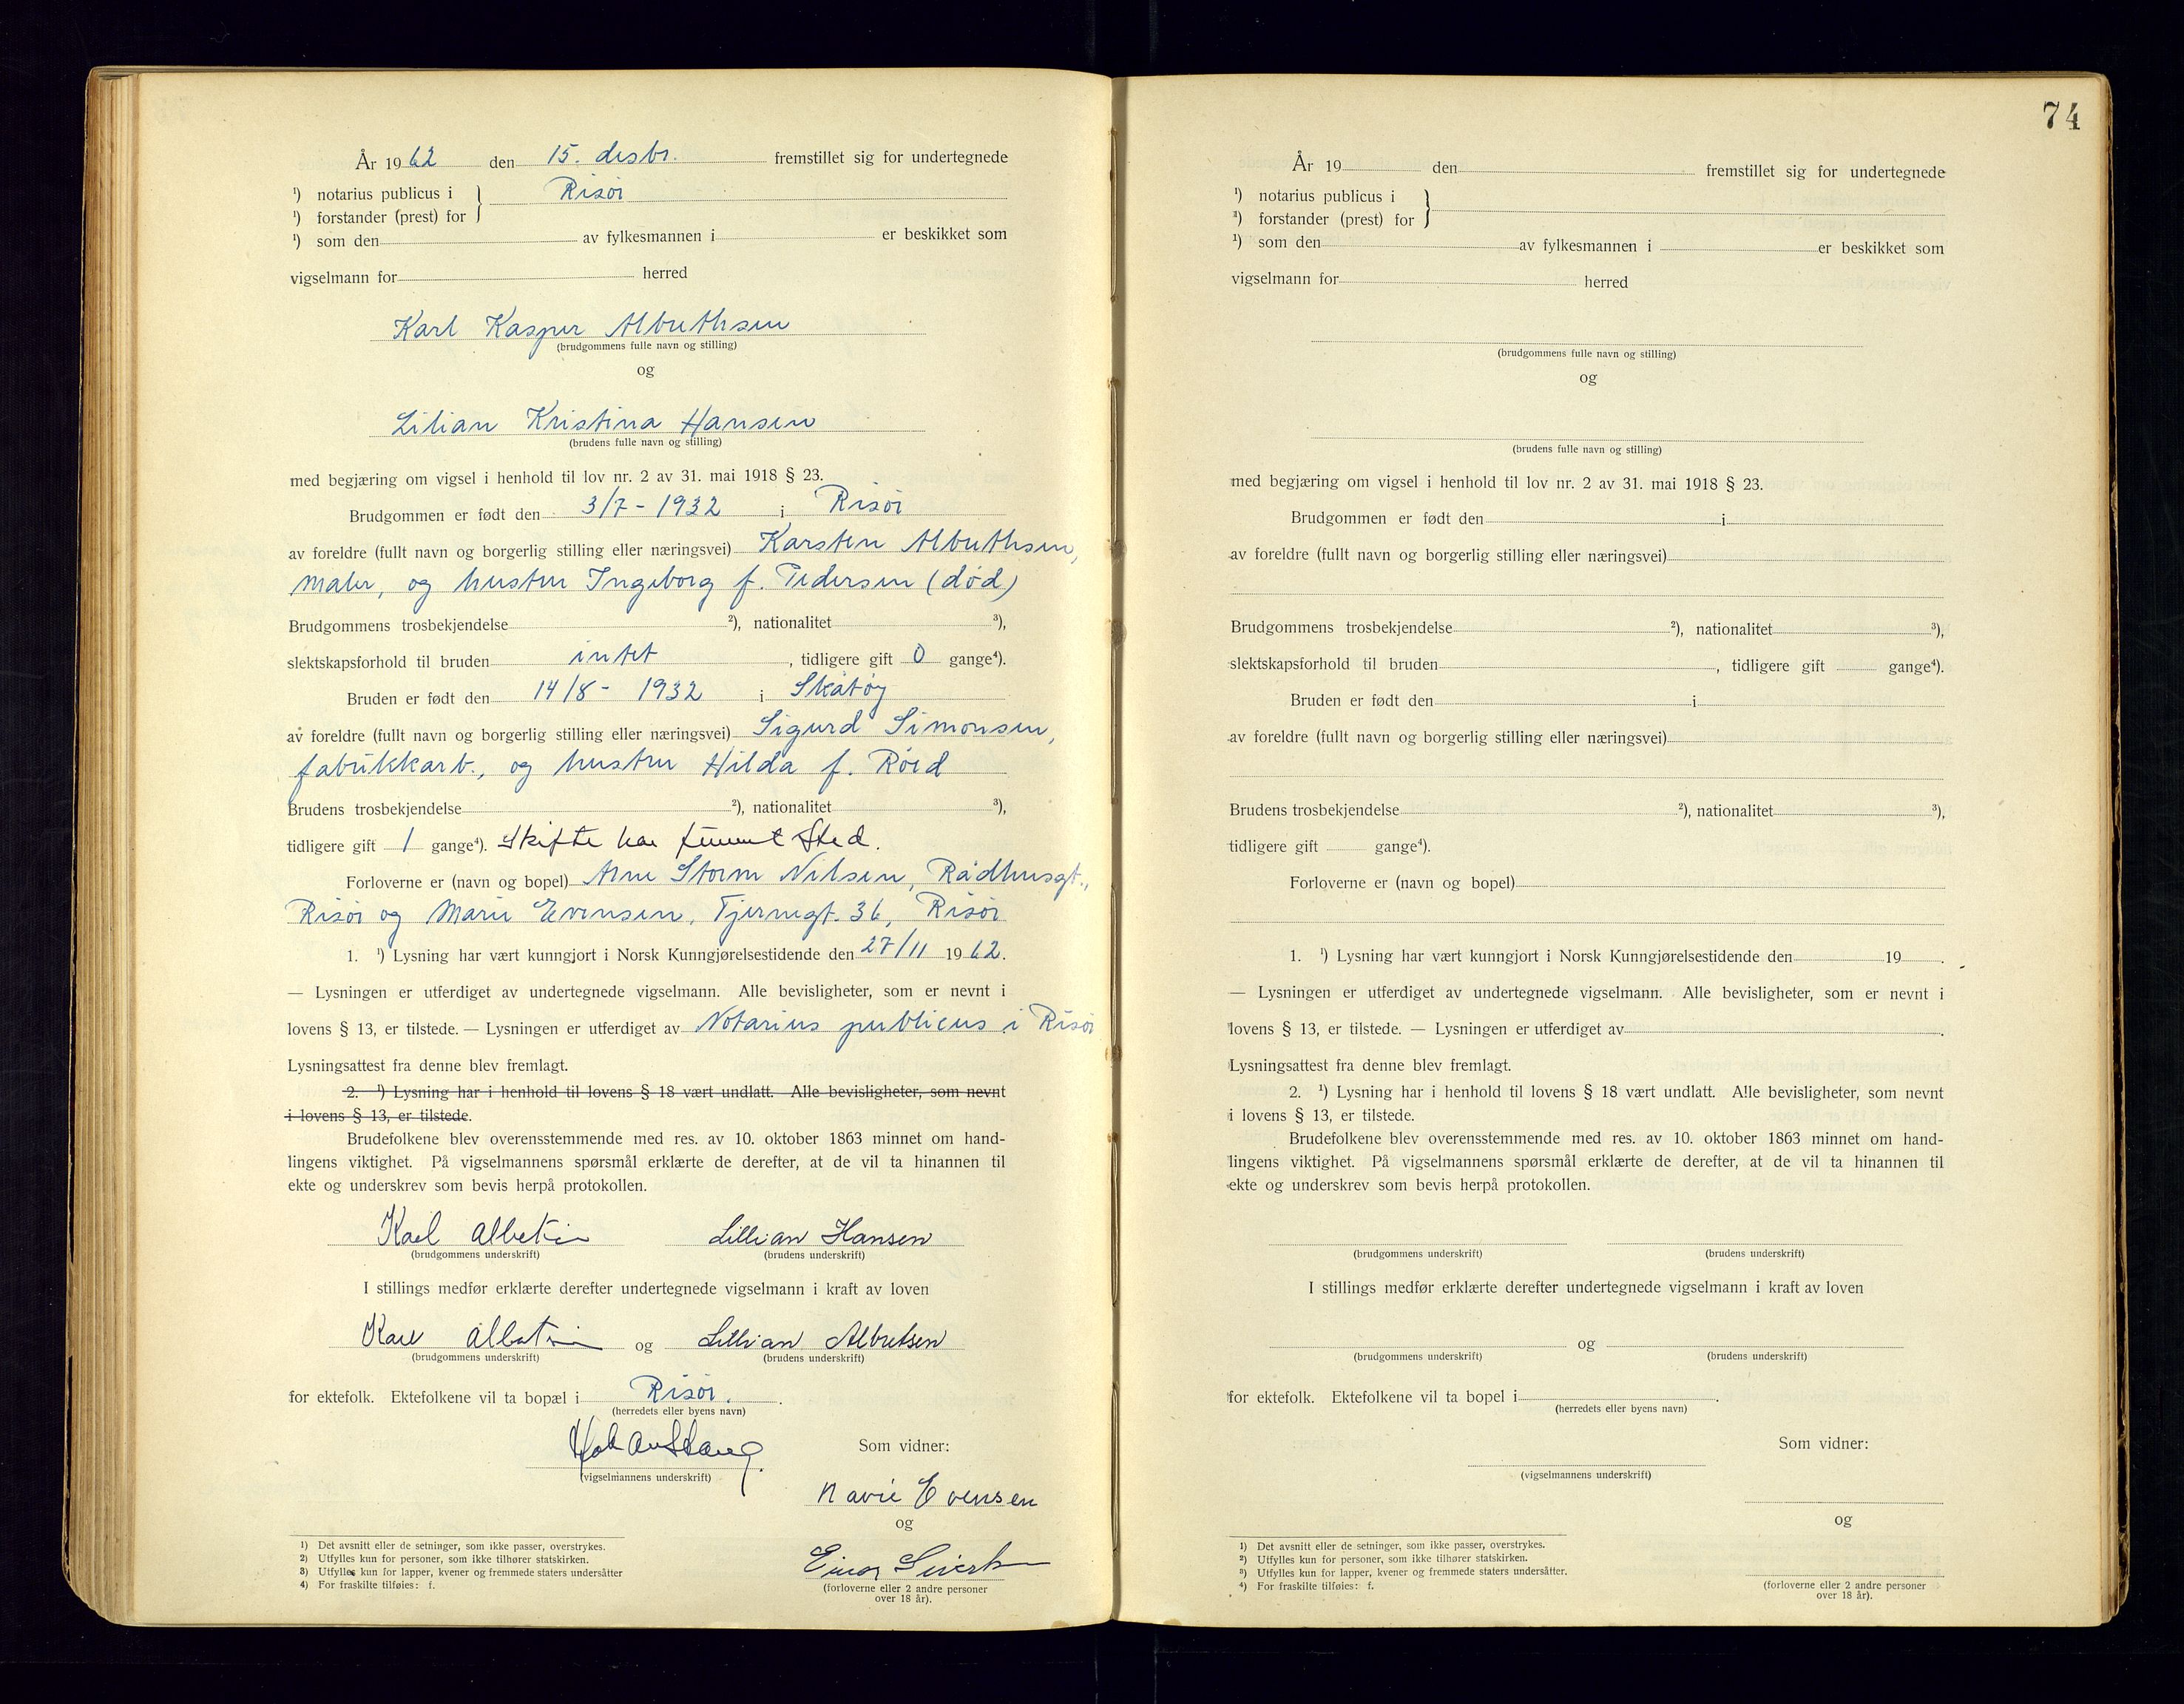 År 1962 den 15. desbr. fremstillet sig for undertegnede
¹) notarius publicus i } Risør
¹) forstander (prest) for
¹) som den av fylkesmannen i er beskikket som
vigselmann for herred
Karl Kasper Albrethsen
(brudgommens fulle navn og stilling)
og
Lilian Kristina Hansen
(brudens fulle navn og stilling)
med begjæring om vigsel i henhold til lov nr. 2 av 31. mai 1918 § 23.
Brudgommen er født den 3/7 - 1932 i Risør
av foreldre (fullt navn og borgerlig stilling eller næringsvei) Karsten Albrethsen,
maler, og hustru Ingeborg f. Pedersen (død)
Brudgommens trosbekjendelse ²), nationalitet ³),
slektskapsforhold til bruden intet, tidligere gift 0 gange⁴).
Bruden er født den 14/8 - 1932 i Skåtøy
av foreldre (fullt navn og borgerlig stilling eller næringsvei) Sigurd Simonsen,
fabrikkarb., og hustru Hilda f. Røed
Brudens trosbekjendelse ²), nationalitet ³),
tidligere gift 1 gange⁴). Skifte har funnet Sted.
Forloverne er (navn og bopel) Arne Storm Nilsen, Rådhusgt.,
Risør og Marie Evensen, Tjernegt. 36, Risør
1. ¹) Lysning har vært kunngjort i Norsk Kunngjørelsestidende den 27/11 1962.
— Lysningen er utferdiget av undertegnede vigselmann. Alle bevisligheter, som er nevnt i
lovens § 13, er tilstede. — Lysningen er utferdiget av Notarius publicus i Risør
Lysningsattest fra denne blev fremlagt.
2. ¹) Lysning har i henhold til lovens § 18 vært undlatt. Alle bevisligheter, som nevnt
i lovens § 13, er tilstede.
Brudefolkene blev overensstemmende med res. av 10. oktober 1863 minnet om hand-
lingens viktighet. På vigselmannens spørsmål erklærte de derefter, at de vil ta hinannen til
ekte og underskrev som bevis herpå protokollen.
Karl Lillian Hansen
(brudgommens underskrift) (brudens underskrift)
I stillings medfør erklærte derefter undertegnede vigselmann i kraft av loven
Karl og Lillian Albretsen
(brudgommens underskrift) (brudens underskrift)
for ektefolk. Ektefolkene vil ta bopæl i Risør.
(herredets eller byens navn)
Som vidner:
(vigselmannens underskrift)
Marie Evensen
og
Einar
(forloverne eller 2 andre personer
over 18 år).
¹) Det avsnitt eller de setninger, som ikke passer, overstrykes.
²) Utfylles kun for personer, som ikke tilhører statskirken.
³) Utfylles kun for lapper, kvener og fremmede staters undersåtter
⁴) For fraskilte tilføies: f.
74
År 19 den fremstillet sig for undertegnede
¹) notarius publicus i }
¹) forstander (prest) for
¹) som den av fylkesmannen i er beskikket som
vigselmann for herred
(brudgommens fulle navn og stilling)
og
(brudens fulle navn og stilling)
med begjæring om vigsel i henhold til lov nr. 2 av 31. mai 1918 § 23.
Brudgommen er født den i
av foreldre (fullt navn og borgerlig stilling eller næringsvei)
Brudgommens trosbekjendelse ²), nationalitet ³),
slektskapsforhold til bruden , tidligere gift gange⁴).
Bruden er født den i
av foreldre (fullt navn og borgerlig stilling eller næringsvei)
Brudens trosbekjendelse ²), nationalitet ³),
tidligere gift gange⁴).
Forloverne er (navn og bopel)
1. ¹) Lysning har vært kunngjort i Norsk Kunngjørelsestidende den 19 .
— Lysningen er utferdiget av undertegnede vigselmann. Alle bevisligheter, som er nevnt i
lovens § 13, er tilstede. — Lysningen er utferdiget av .
Lysningsattest fra denne blev fremlagt.
2. ¹) Lysning har i henhold til lovens § 18 vært undlatt. Alle bevisligheter, som nevnt
i lovens § 13, er tilstede.
Brudefolkene blev overensstemmende med res. av 10. oktober 1863 minnet om hand-
lingens viktighet. På vigselmannens spørsmål erklærte de derefter, at de vil ta hinannen til
ekte og underskrev som bevis herpå protokollen.
(brudgommens underskrift) (brudens underskrift)
I stillings medfør erklærte derefter undertegnede vigselmann i kraft av loven
og
(brudgommens underskrift) (brudens underskrift)
for ektefolk. Ektefolkene vil ta bopel i .
(herredets eller byens navn)
Som vidner:
(vigselmannens underskrift)
og
(forloverne eller 2 andre personer
over 18 år).
¹) Det avsnitt eller de setninger, som ikke passer, overstrykes.
²) Utfylles kun for personer, som ikke tilhører statskirken.
³) Utfylles kun for lapper, kvener og fremmede staters undersåtter.
⁴) For fraskilte tilføies: f.